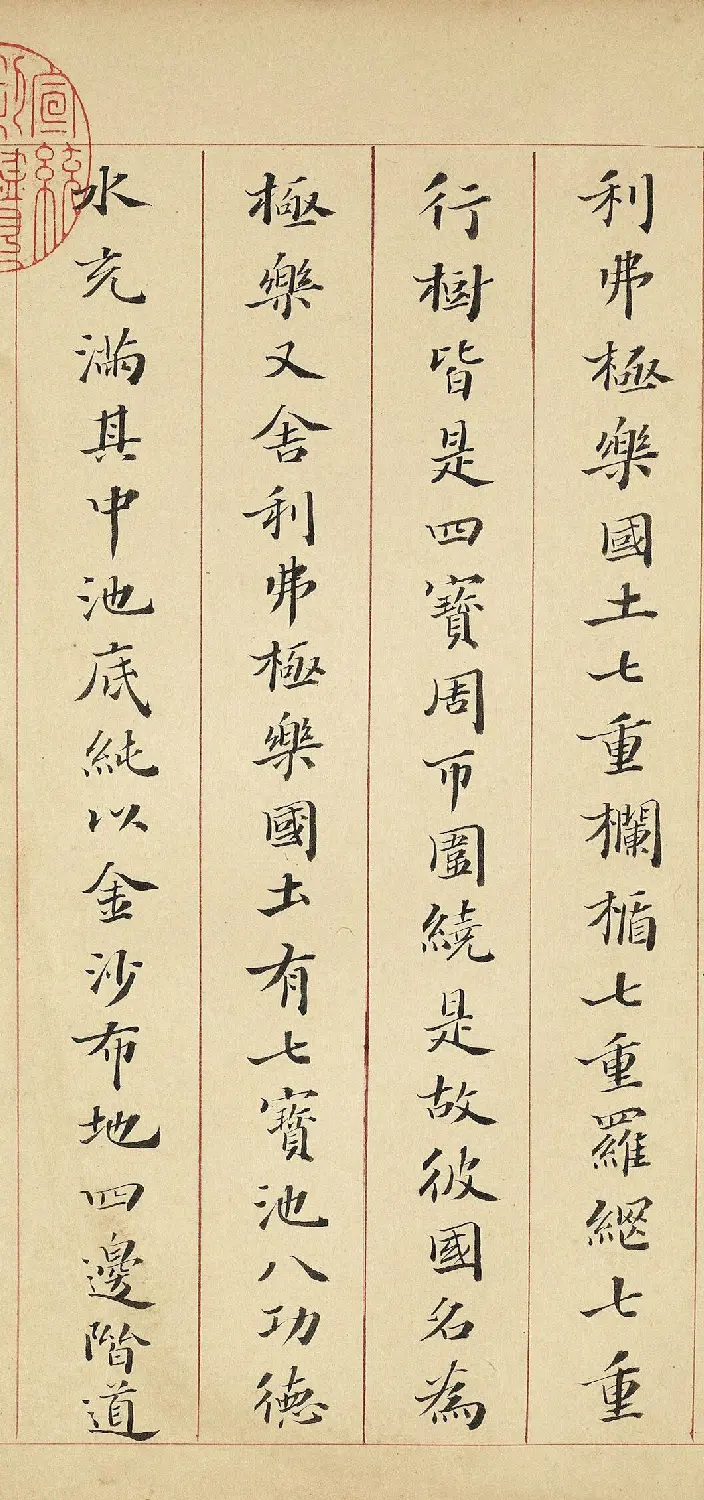 利弗極樂國土七重欄楯七重羅網七重
行樹皆是四寶周帀圍繞是故彼國名為
極樂又舍利弗極樂國土有七寶池八功德
水充滿其中池底純以金沙布地四邊階道
宣統